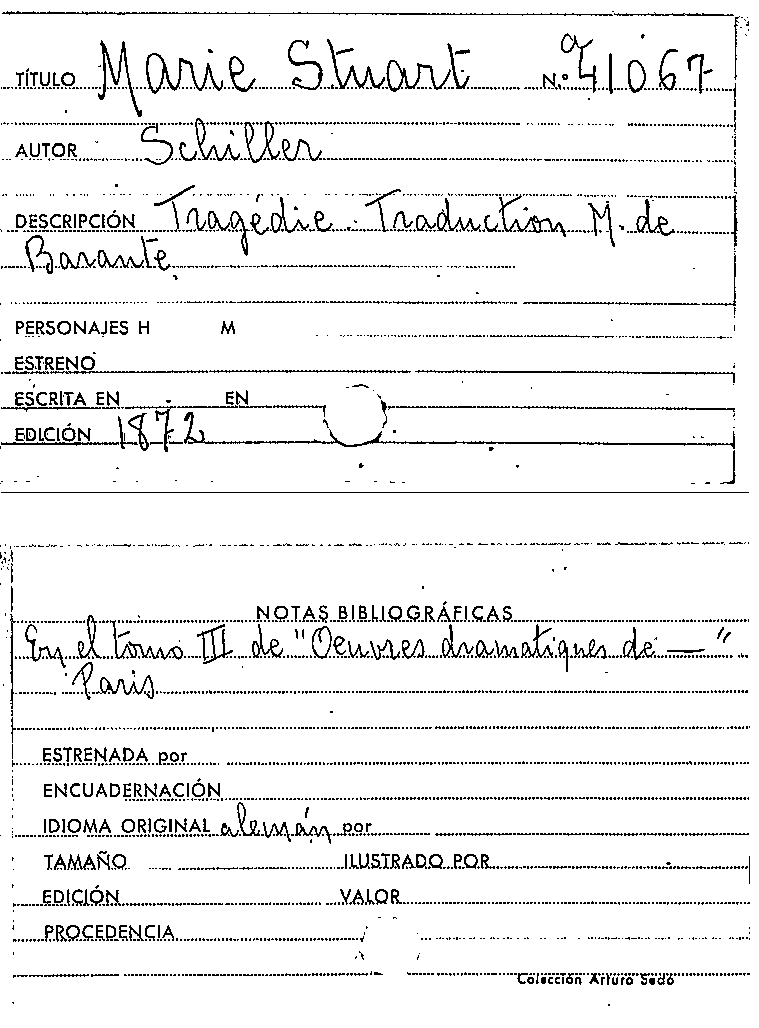 TÍTULO Marie Stuart N.º a 41067
AUTOR Schiller
DESCRIPCIÓN Tragédie. Traduction M. de
Barante
PERSONAJES H M
ESTRENO
ESCRITA EN EN
EDICIÓN 1872
NOTAS BIBLIOGRÁFICAS
En el tomo III de "Oeuvres dramatiques de —"
Paris
ESTRENADA por
ENCUADERNACIÓN
IDIOMA ORIGINAL alemán por
TAMAÑO ILUSTRADO POR
EDICIÓN VALOR
PROCEDENCIA
Colección Arturo Sedó